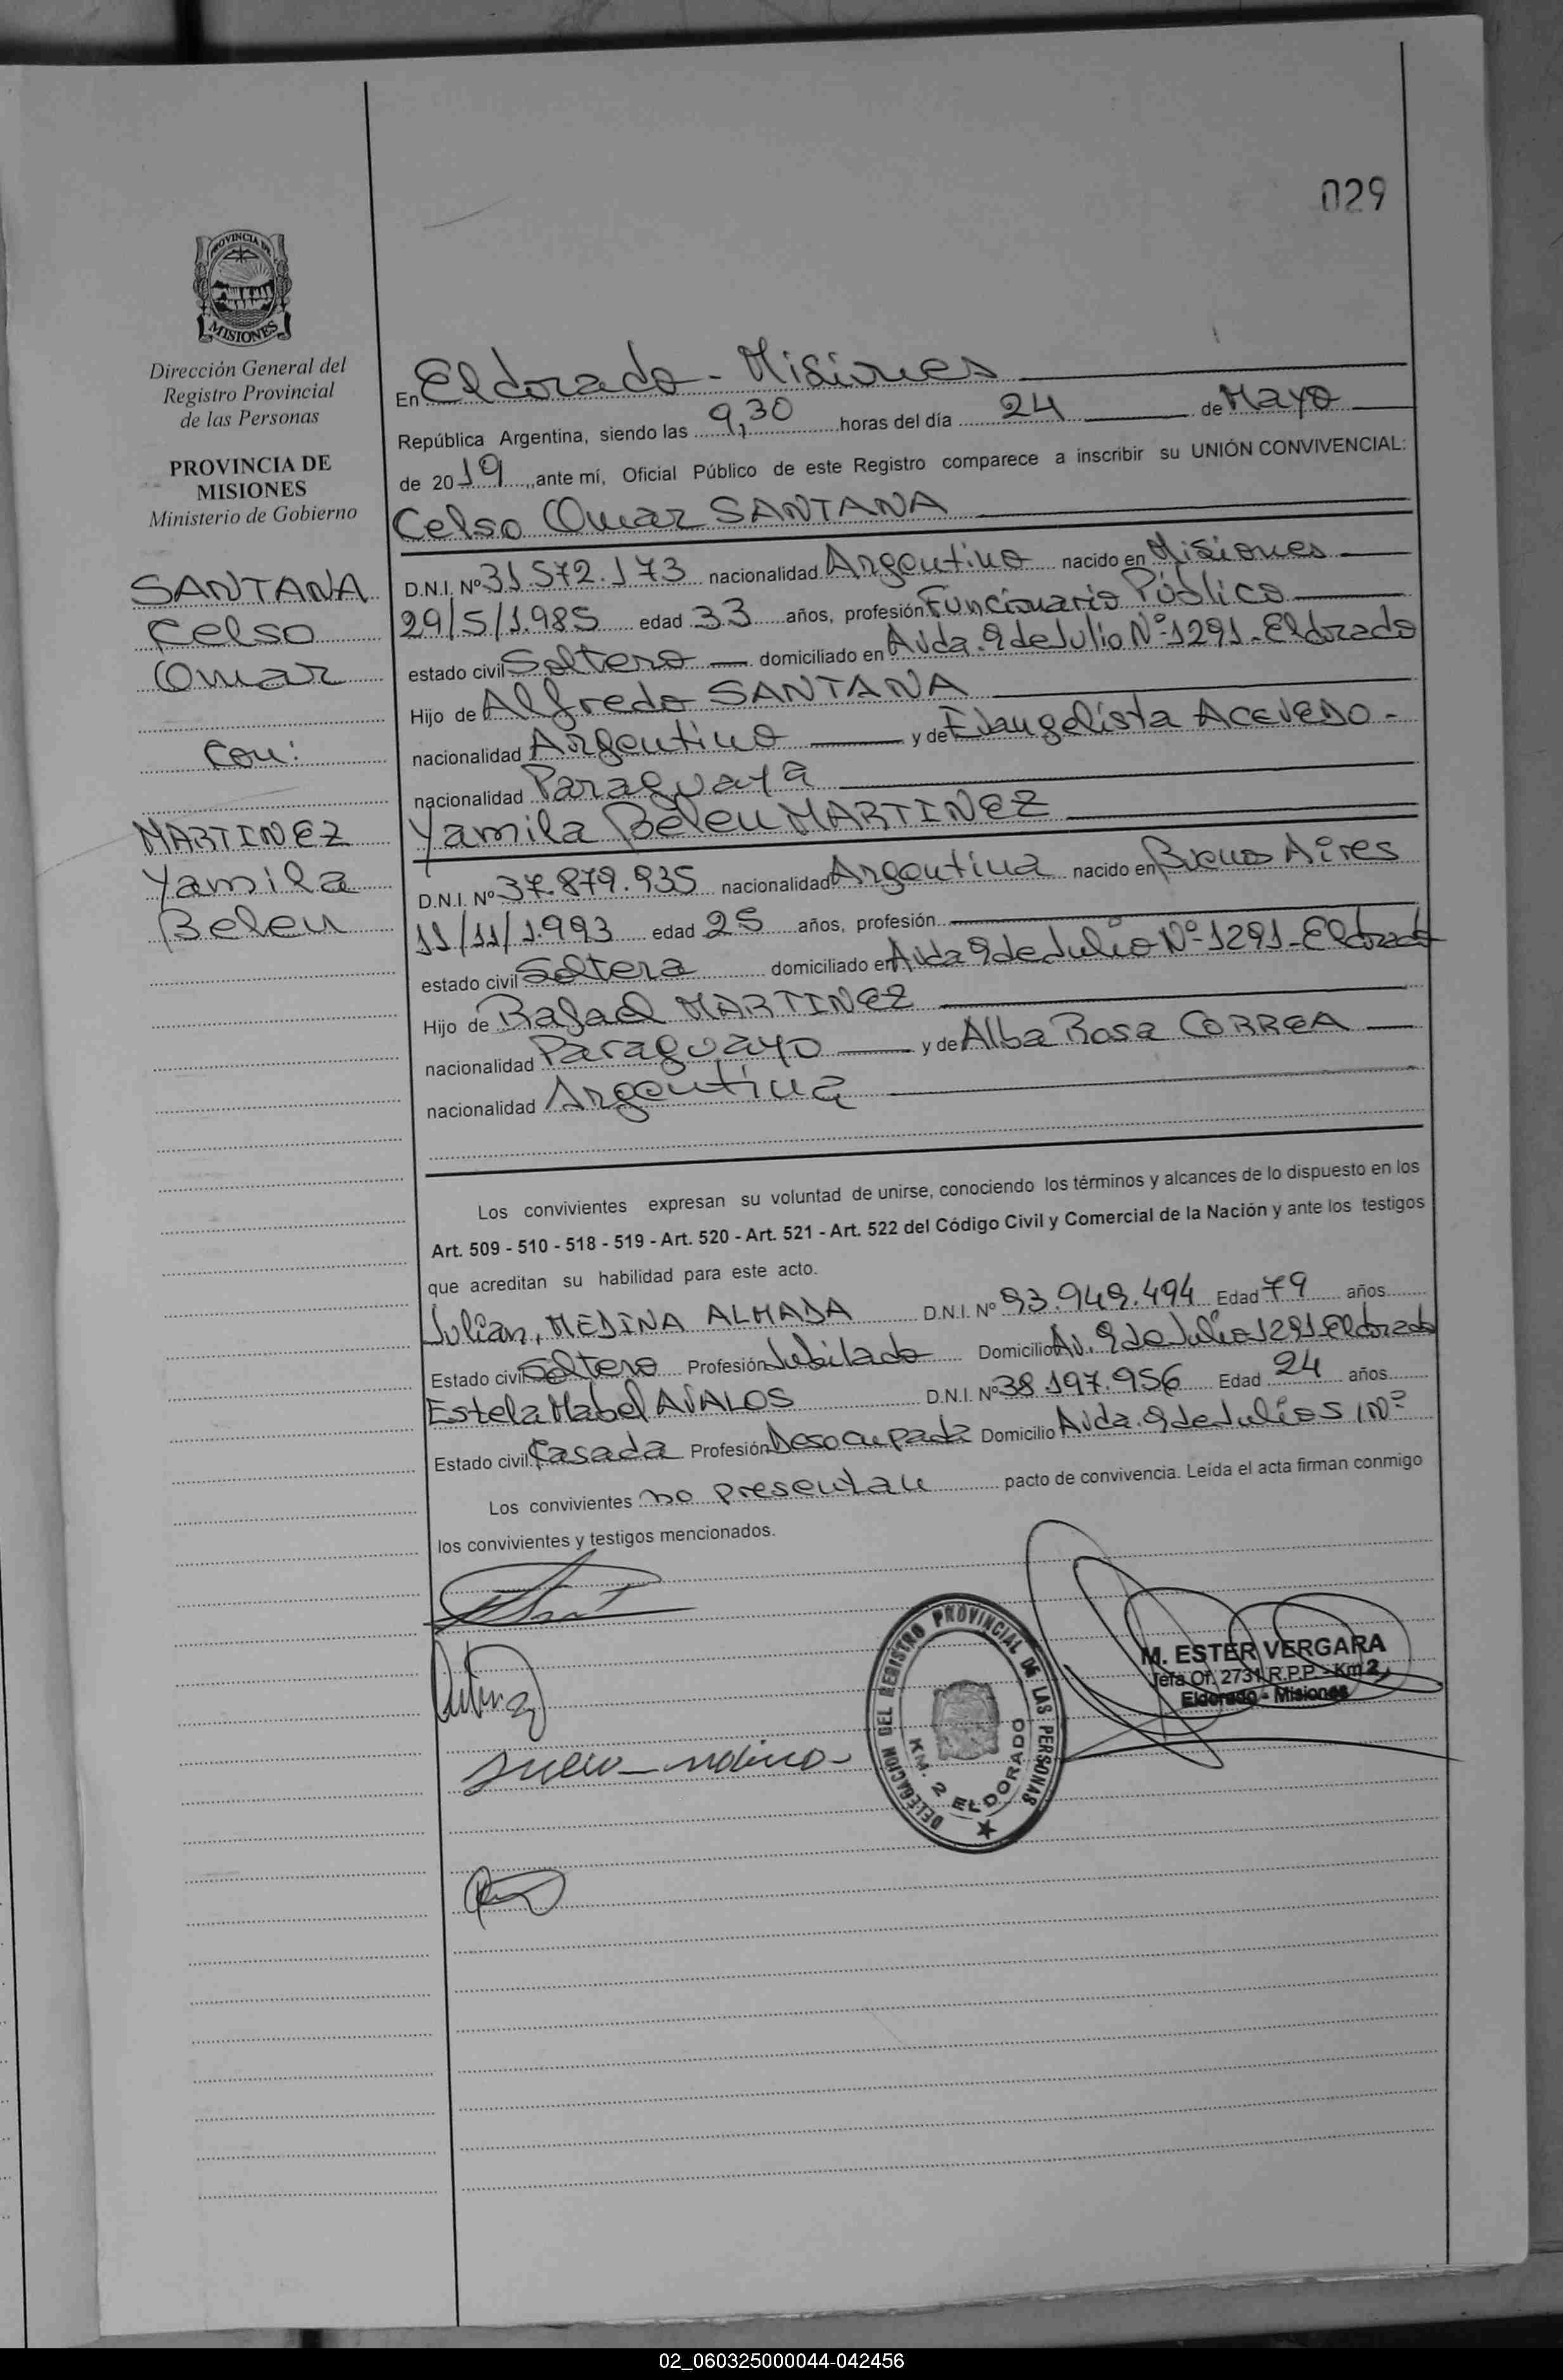 029
PROVINCIA DE
MISIONES
Dirección General del
Registro Provincial
de las Personas
PROVINCIA DE
MISIONES
Ministerio de Gobierno
SANTANA
Celso
Omar
Con:
MARTINEZ
Yamila
Belen
En Eldorado - Misiones
República Argentina, siendo las 9,30 horas del día 24 de Mayo
de 2019, ante mí, Oficial Público de este Registro comparece a inscribir su UNIÓN CONVIVENCIAL:
Celso Omar SANTANA
D.N.I. Nº 31.572.173 nacionalidad Argentino nacido en Misiones
29/5/1.985 edad 33 años, profesión Funcionario Público
estado civil Soltero domiciliado en Avda. 9 de Julio Nº 1291 - Eldorado
Hijo de Alfredo SANTANA
nacionalidad Argentino y de Evangelista ACEVEDO -
nacionalidad Paraguaya
Yamila Belen MARTINEZ
D.N.I. Nº 37.879.935 nacionalidad Argentina nacido en Buenos Aires
11/11/1.993 edad 25 años, profesión
estado civil Soltera domiciliado en Avda 9 de Julio Nº 1291 - Eldorado
Hijo de Rafael MARTINEZ
nacionalidad Paraguayo y de Alba Rosa CORREA
nacionalidad Argentina
Los convivientes expresan su voluntad de unirse, conociendo los términos y alcances de lo dispuesto en los
Art. 509 - 510 - 518 - 519 - Art. 520 - Art. 521 - Art. 522 del Código Civil y Comercial de la Nación y ante los testigos
que acreditan su habilidad para este acto.
Julian, MEDINA ALMADA D.N.I. Nº 93.949.494 Edad 79 años
Estado civil Soltero Profesión Jubilado Domicilio Av. 9 de Julio 1291 Eldorado
Estela Mabel AVALOS D.N.I. Nº 38.197.956 Edad 24 años
Estado civil Casada Profesión Desocupada Domicilio Avda. 9 de Julio S/Nº
Los convivientes no presentan pacto de convivencia. Leída el acta firman conmigo
los convivientes y testigos mencionados.
DELEGACION DEL REGISTRO PROVINCIAL DE LAS PERSONAS
KM. 2 ELDORADO
M. ESTER VERGARA
Jefa Of. 2731 R.P.P. - Km 2,
Eldorado - Misiones
02_060325000044-042456